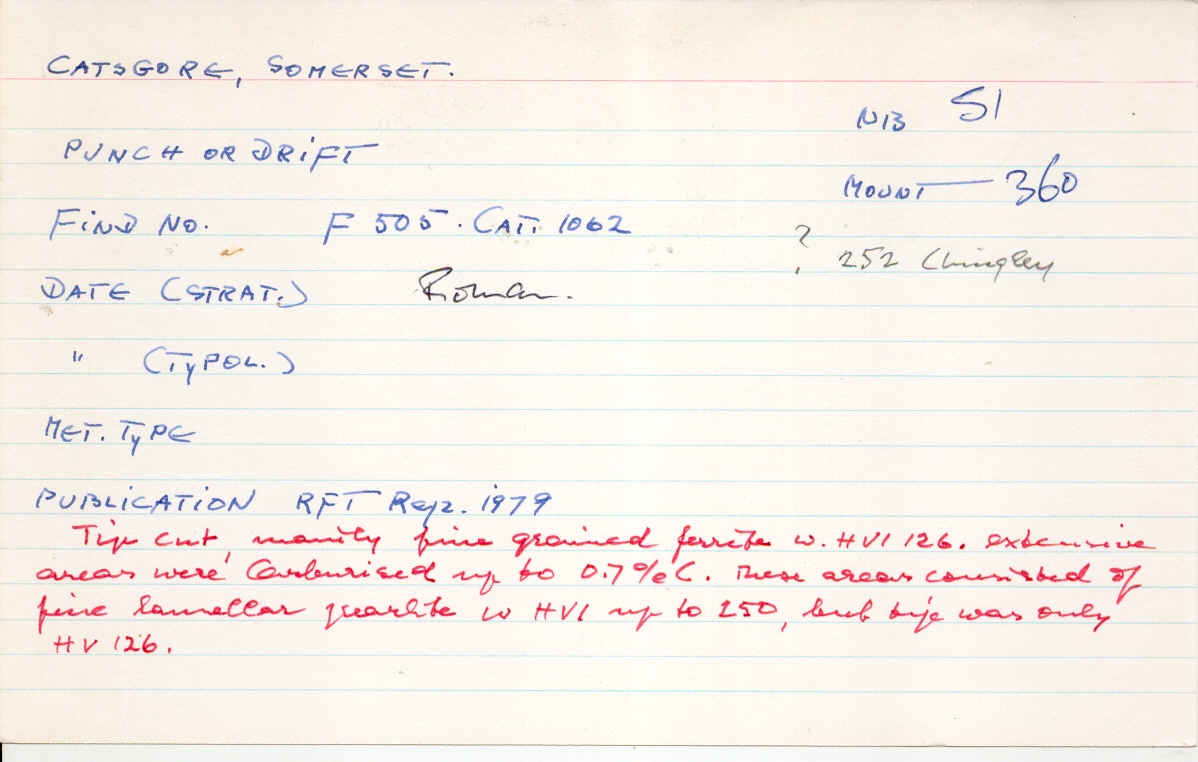 CATSGORE, SOMERSET.
NB 51
PUNCH OR DRIFT
MOUNT — 360
FIND NO. F 505. CAT. 1062
? 252 Chingley
DATE (STRAT.) Roman.
" (TYPOL.)
MET. TYPE
PUBLICATION RFT Rep. 1979
Tip cut, mainly fine grained ferrite w. HV1 126. extensive
areas were carburised up to 0.7%C. These areas consisted of
fine lamellar pearlite w HV1 up to 250, but tip was only
HV 126.